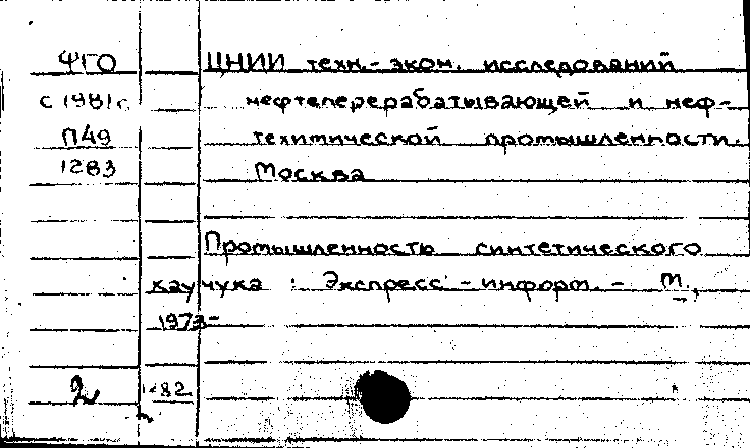 ФГО ЦНИИ техн.-экон. исследований
с 1981г. нефтеперерабатывающей и неф-
П49 техимической промышленности.
1283 Москва
Промышленность синтетического
каучука : Экспресс - информ. - М.,
1973-
2 82